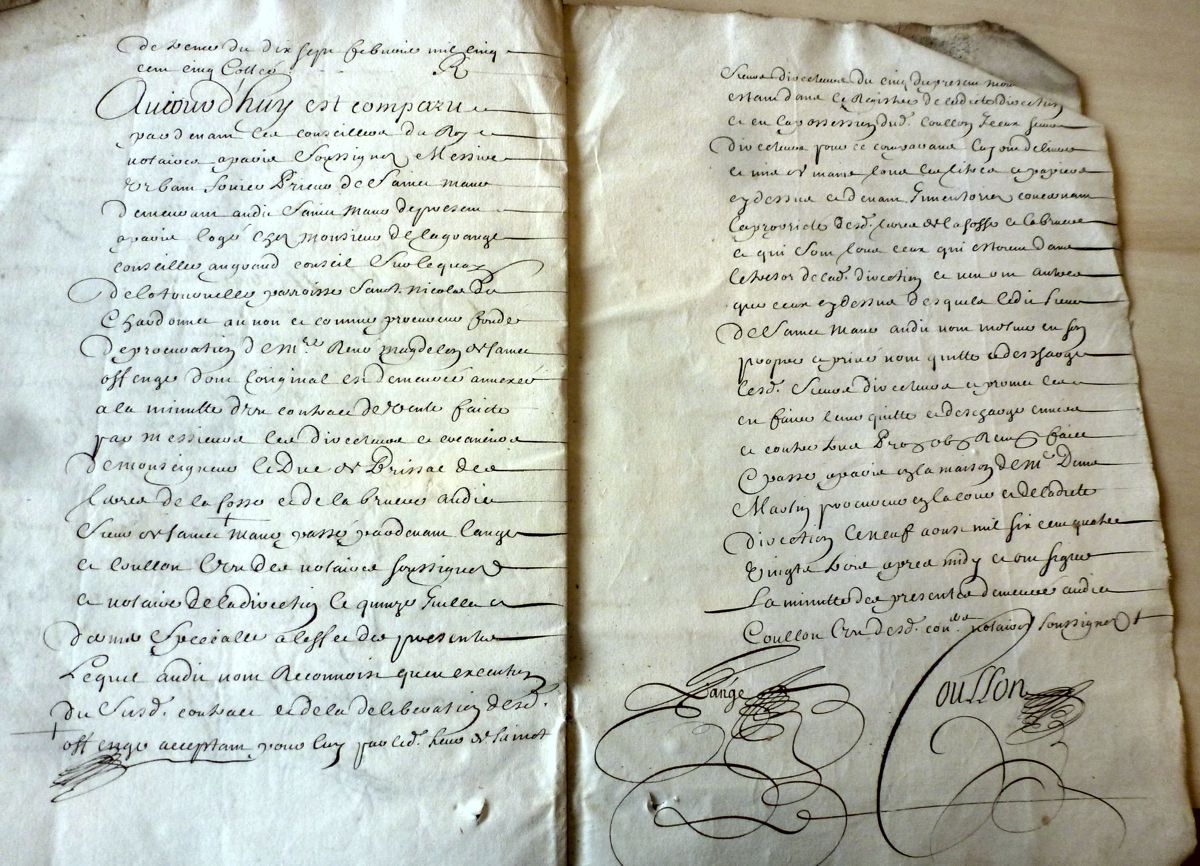 de vente du dix sept febvrier mil cinq
cens cinq Cotté R
Aujourd'huy est comparu
pardevant les conseillers du Roy
notaires a paris soussignez Messire
Urbain Prieur de Sainct Mars
demeurant audit Sainct Mars de present
a paris logé chez Monsieur de la grange
conseiller au grand conseil sur le quay
de la tournelle parroisse Sainct Nicolas du
Chardonnet au nom et comme procureur fondé
de procuration de Mre René Magdelon de Sainct
offenge dont l'original est demeuré annexé
a la minutte d'un contract de vente faicte
par Messieurs les directeurs et creanciers
de monseigneur le Duc de Brissac des
terres de la fosse et de la bruere audit
Sieur de Sainct Mars passé pardevant Lange
et Coullon l'un des notaires soussignez
et notaire de la direction le quinze Juillet
dernier Specialle a l'effet des presentes
Lequel audit nom Reconnoist qu'en execution
du Susd. contract et de la deliberation desd.
offenge acceptant pour luy par led. Sieur de Sainct
Sieurs directeurs du cinq du present mois
estant dans le Registre de ladicte direction
et en la possession dud. Coullon Iceux Sieurs
directeurs pour ce comparans luy ont delivré
et mis es mains tous les tiltres et papiers
cy dessus et devant Inventoriez concernant
la proprieté desd. terres de la fosse et la bruere
et qui sont tous ceux qui estoient dans
le tresor de lad. direction et n'en ont autres
que ceux cy dessus desquels ledit Sieur
de Sainct Mars audit nom mesme en son
propre et privé nom quitte et descharge
lesd. Sieurs directeurs et promet les
en faire tenir quitte et descharge envers
et contre tous Pro[mettant] ob[ligeant] Ren[onçant] faict
et passé a paris en la maison de Mr Denis
Maulin procureur en la cour et de ladicte
direction le neuf aoust mil six cens quatre
vingts trois apres midy et ont signé
La minutte des presentes demeurée audit
Coullon l'un desd. conrs notaires soussignez
Lange
Coullon